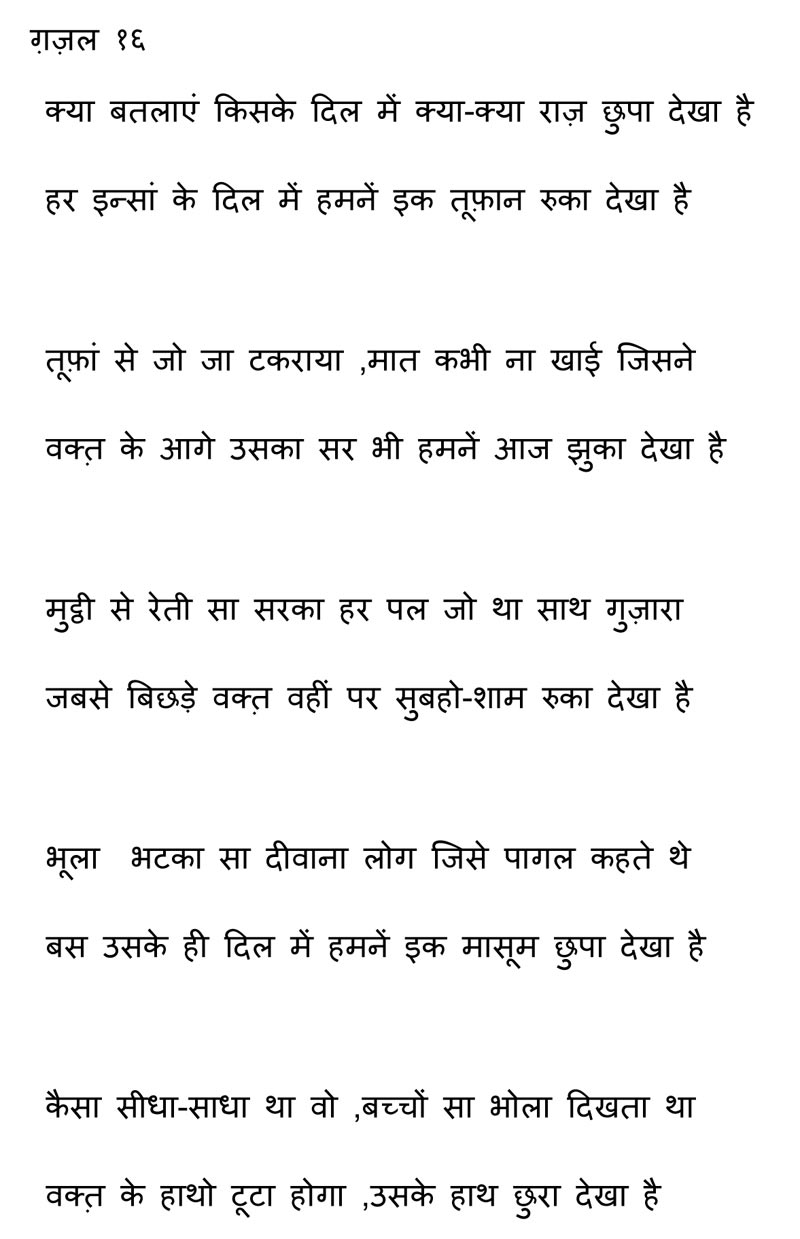 ग़ज़ल १६
क्या बतलाएं किसके दिल में क्या-क्या राज़ छुपा देखा है
हर इन्सां के दिल में हमनें इक तूफ़ान रुका देखा है
तूफ़ां से जो जा टकराया ,मात कभी ना खाई जिसने
वक्त़ के आगे उसका सर भी हमनें आज झुका देखा है
मुट्ठी से रेती सा सरका हर पल जो था साथ गुज़ारा
जबसे बिछड़े वक्त़ वहीं पर सुबहो-शाम रुका देखा है
भूला भटका सा दीवाना लोग जिसे पागल कहते थे
बस उसके ही दिल में हमनें इक मासूम छुपा देखा है
कैसा सीधा-साधा था वो ,बच्चों सा भोला दिखता था
वक्त़ के हाथो टूटा होगा ,उसके हाथ छुरा देखा है